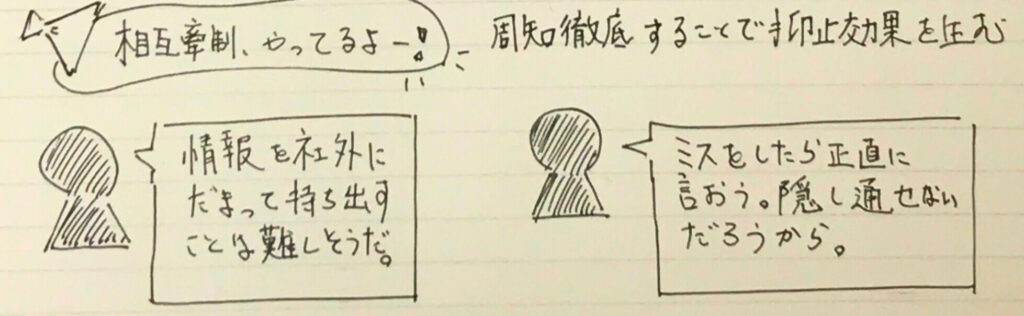 相互牽制、やってるよー!
周知徹底することで抑止効果を生む
情報を社外に
だまって持ち出す
ことは難しそうだ。
ミスをしたら正直に
言おう。隠し通せない
だろうから。